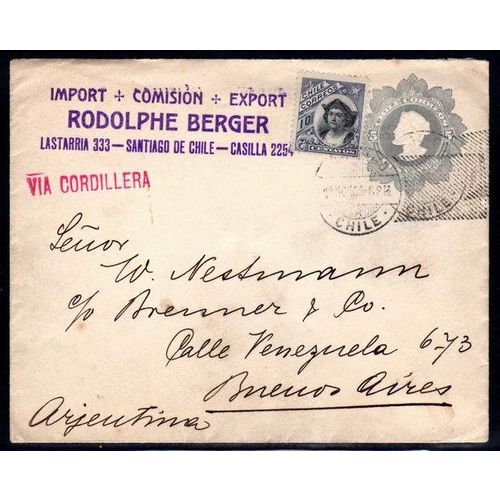 IMPORT + COMISIÓN + EXPORT
RODOLPHE BERGER
LASTARRIA 333 — SANTIAGO DE CHILE — CASILLA 2254
CHILE
CORREOS
10
CENTAVOS
5 5
CHILE
CHILE
VIA CORDILLERA
Señor
W. Nestmann
c/o Brenner & Co.
Calle Venezuela 673
Buenos Aires
Argentina